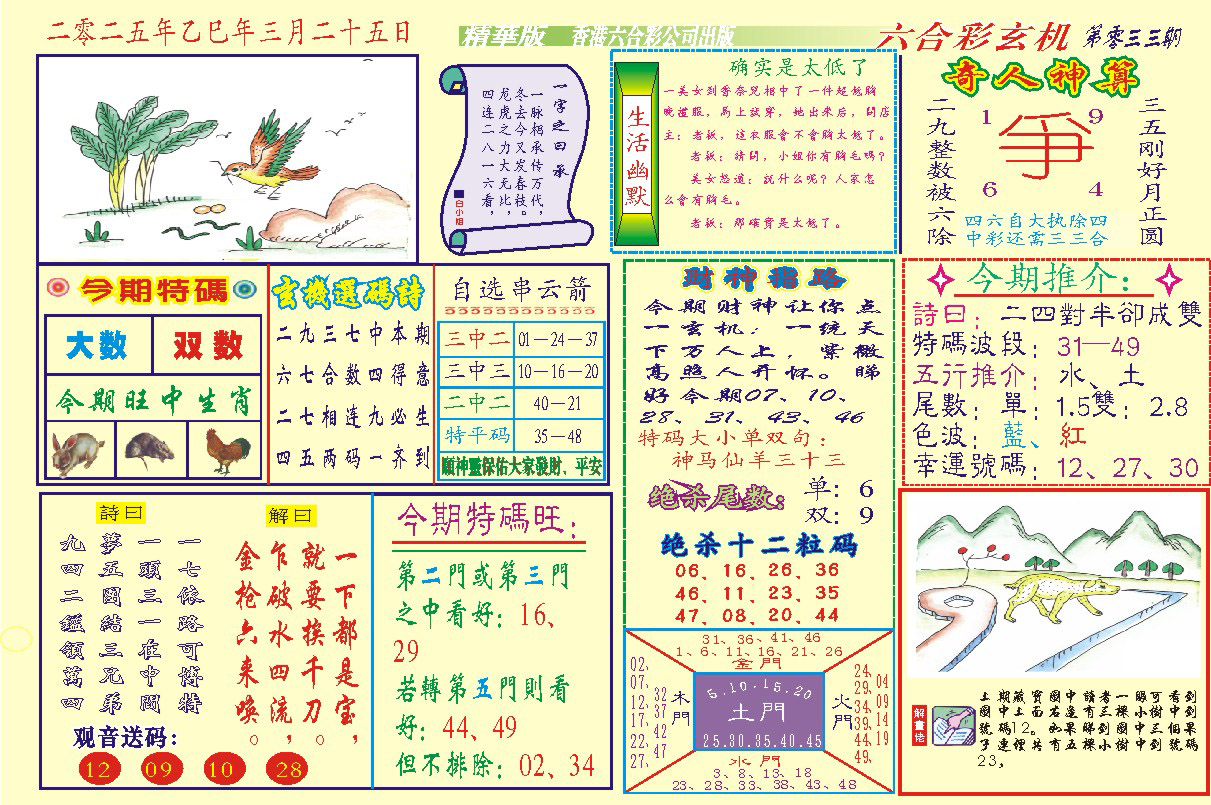 二零二五年乙巳年三月二十五日
精華版 香港六合彩公司出版
六合彩玄机 第零三三期
一字之曰承
一脉相承传万代，
冬去今又发春枝。
龙虎之力大无比，
四连二八一六看，
白小姐
生活幽默
确实是太低了
一美女到香奈兒相中了一件超低胸
晚禮服，馬上試穿，她出來后，問店
主：老板，這衣服會不會胸太低了。
老板：請問，小姐你有胸毛嗎？
美女怒道：説什么呢？人家怎
么會有胸毛。
老板：那確實是太低了。
奇人神算
二九整数被六除
1 9
爭
6 4
三五刚好月正圆
四六自大执除四
中彩还需三三合
今期特碼
大数 双数
今期旺中生肖
玄機選碼詩
二九三七中本期
六七合数四得意
二七相连九必生
四五两码一齐到
自选串云箭
三中二 01—24—37
三中三 10—16—20
二中二 40—21
特平码 35—48
願神靈保佑大家發財、平安
財神指路
今期财神让你点
一玄机：一统天
下万人上，紫微
高照人开怀。睇
好今期07、10、
28、31、43、46
特码大小单双句：
神马仙羊三十三
绝杀尾数：
单：6
双：9
绝杀十二粒码
06、16、26、36
46、11、23、35
47、08、20、44
今期推介：
詩曰：二四對半卻成雙
特碼波段：31—49
五行推介：水、土
尾數：單：1.5雙：2.8
色波：藍、紅
幸運號碼：12、27、30
詩曰
一七依路可博特
一頭三一在中間
夢五團結三兄弟
九四二繼領萬四
解曰
一下都是宝，
就要挨千刀。
乍破水四流，
金枪六来唤。
观音送码：
12 09 10 28
今期特碼旺：
第二門或第三門
之中看好：16、
29
若轉第五門則看
好：44、49
但不排除：02、34
31、36、41、46
1、6、11、16、21、26
金門
02、07、12、17、22、27、
32、37、42、47
木門
5.10.15.20
土門
25.30.35.40.45
火門
24、29、34、39、44、49、
04、09、14、19
水門
3、8、13、18
23、28、33、38、43、48
解畫佬
上期藏寶圖中讀者一眼可看到
圖中上面右邊有三棵小樹中到
號碼12。如果睇到圖中三個果
子連裡共有五棵小樹中到號碼
23，